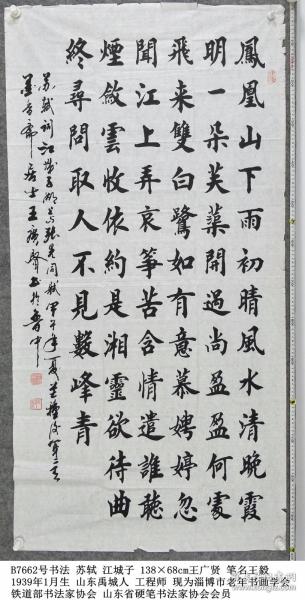 鳳凰山下雨初晴風水清晚霞
明一朵芙蕖開過尚盈盈何處
飛来雙白鷺如有意慕娉婷忽
聞江上弄哀箏苦含情遣誰聽
煙斂雲收依約是湘靈欲待曲
終尋問取人不見數峰青
苏轼词江城子湖与张先同赋甲午年夏
墨香斋居士王广贤书於鲁中
B7662号书法 苏轼 江城子 138×68cm王广贤 笔名王毅
1939年1月生 山东禹城人 工程师 现为淄博市老年书画学会
铁道部书法家协会 山东省硬笔书法家协会会员